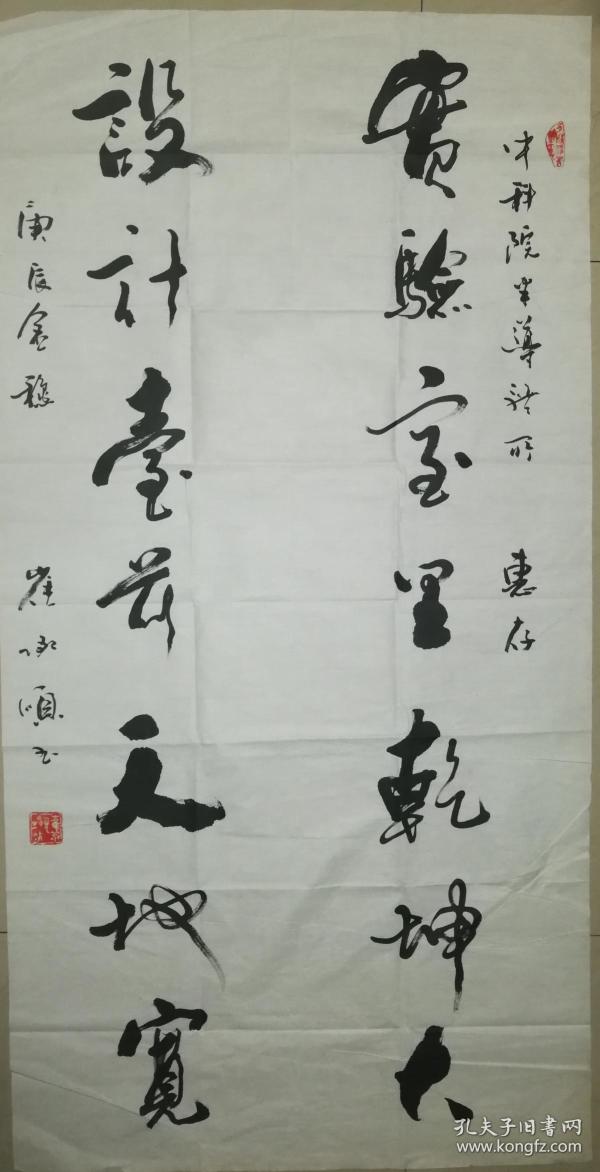 中科院半導體所 惠存
實驗室里乾坤大
設計臺前天地寬
庚辰金穐 崔承順书
孔夫子旧書网
www.kongfz.com